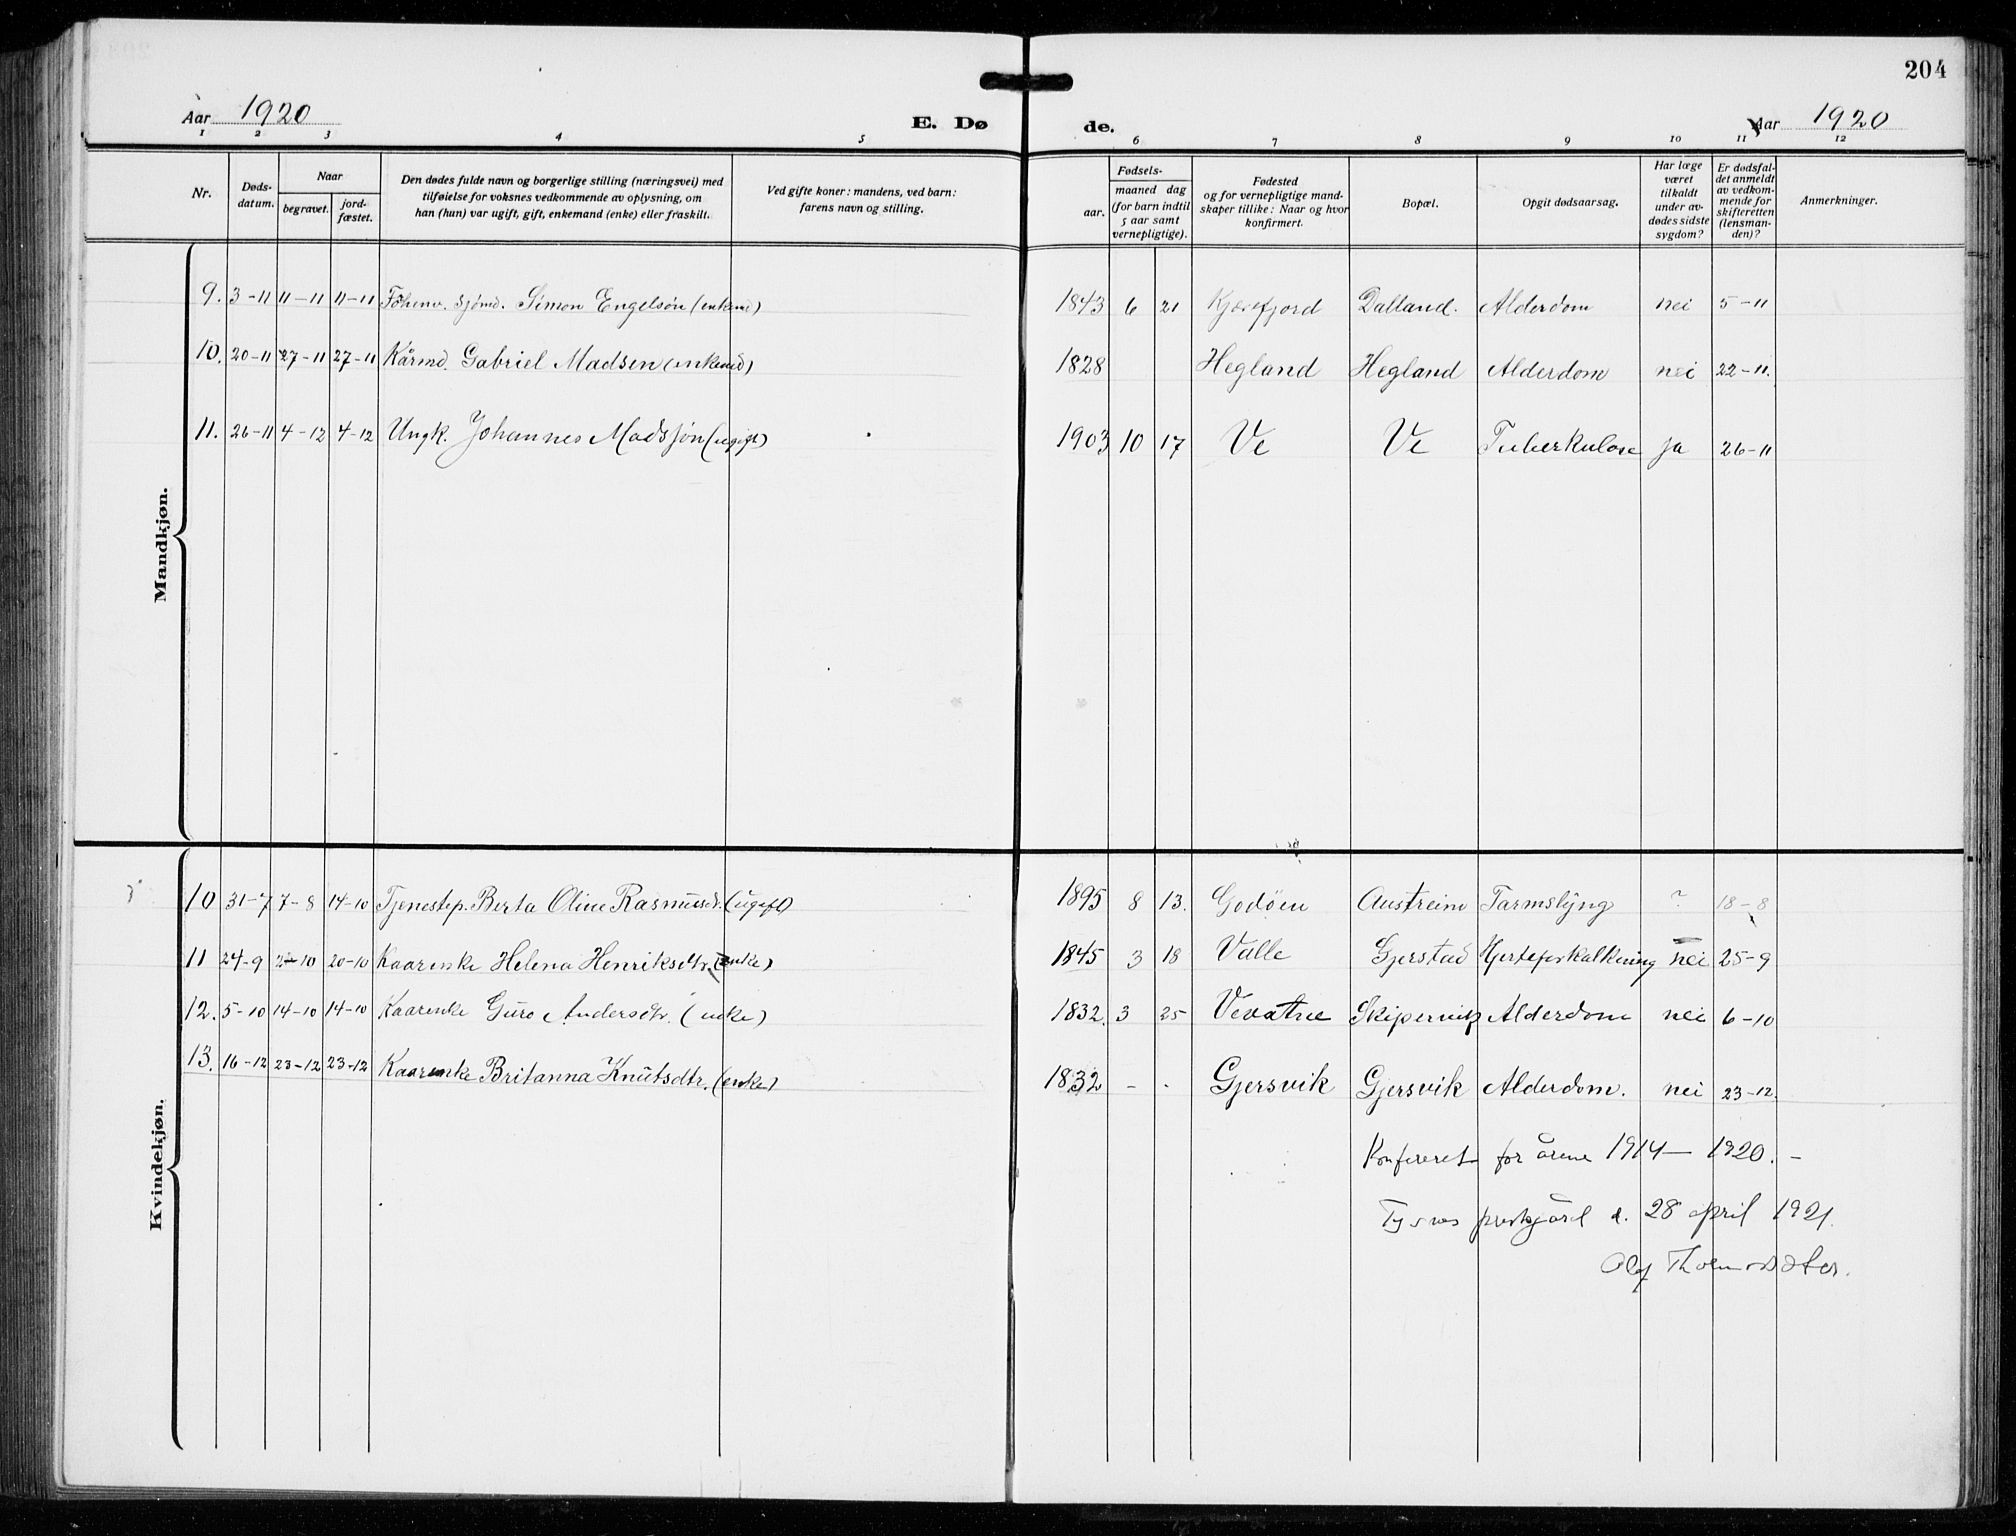 204
Aar 1920 E. Dø de. Aar 1920
1 2 3 4 5 6 7 8 9 10 11 12
Nr. Døds-datum. Naar begravet. jord-fæstet. Den dødes fulde navn og borgerlige stilling (næringsvei) med tilføielse for voksnes vedkommende av oplysning, om han (hun) var ugift, gift, enkemand (enke) eller fraskilt. Ved gifte koner: mandens, ved barn: farens navn og stilling. Fødsels- aar. maaned dag (for barn indtil 5 aar samt vernepligtige). Fødested og for vernepligtige mand-skaper tillike: Naar og hvor konfirmert. Bopæl. Opgit dødsaarsag. Har læge været tilkaldt under av-dødes sidste sygdom? Er dødsfal-det anmeldt av vedkom-mende for skifteretten (lensman-den)? Anmerkninger.
Mandkjøn.
9. 3-11 11-11 11-11 sjömd. Simon Engelsön (enkem) 1843 6 21 Dalland. Alderdom nei 5-11
10. 20-11 27-11 27-11 Kårmd. Gabriel Madsen (enkemd) 1828 Hegland Hegland Alderdom nei 22-11.
11. 26-11 4-12 4-12 Ungk. Johannes Madssön (ugift) 1903 10 17 Ve Ve Tuberkulose ja 26-11
Kvindekjøn.
10 31-7 7-8 14-10 Tjenestep. Berta Oline Rasmusd. (ugift) 1895 8 13. Godöen Austreim Tarmslyng ? 18-8
11 24-9 2-10 20-10 Kaarenke Helena Henriksdtr. (enke) 1845 3 18 Valle Gjerstad Hjerteforkalkning nei 25-9
12. 5-10 14-10 14-10 Kaarenke Guro Andersdtr. (enke) 1832. 3 25 Vevatne Skipervik Alderdom nei 6-10
13. 16-12 23-12 23-12 Kaarenke Britanna Knutsdtr. (enke) 1832 - - Gjersvik Gjersvik Alderdom. nei 23-12.
Konfereret for årene 1914 - 1920. -
Tysnes prestgård d. 28 april 1921.
Olaf